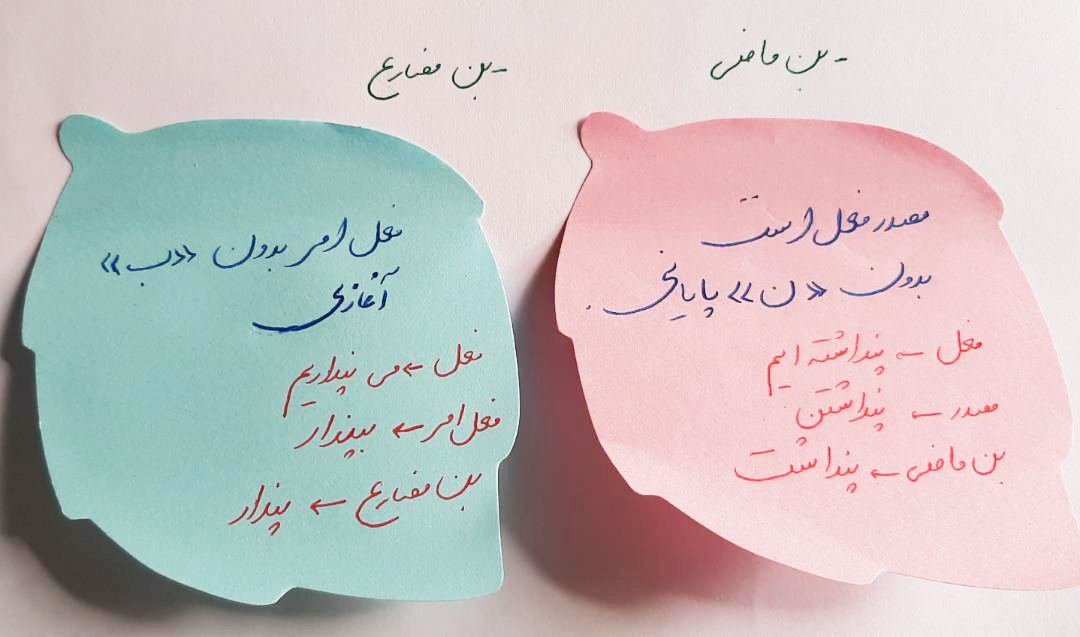 - بن ماضی
مصدر فعل است
بدون «ن» پایانی.
فعل ← پنداشته ایم
مصدر ← پنداشتن
بن ماضی ← پنداشت
- بن مضارع
فعل امر بدون «ب»
آغازی
فعل ← می پنداریم
فعل امر ← بپندار
بن مضارع ← پندار